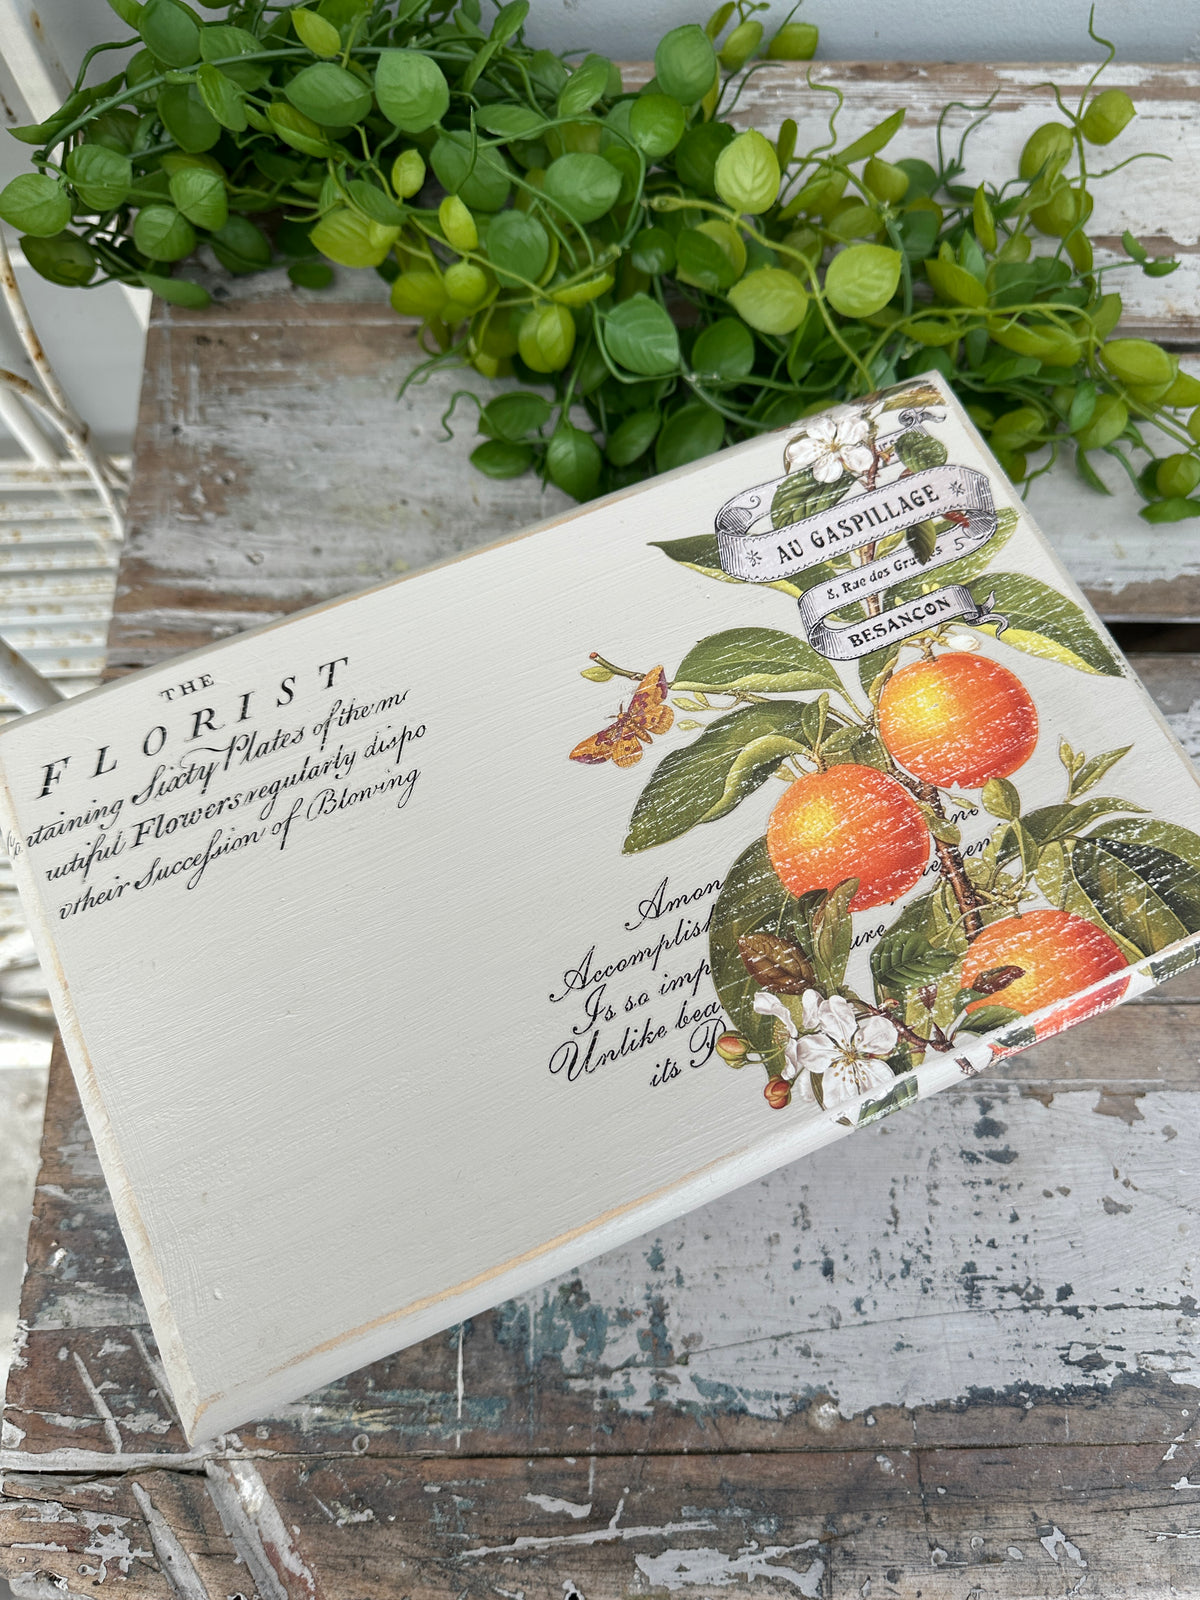 THE
FLORIST
ntaining Sixty Plates of the mo
utiful Flowers regularly dispo
their Succeſsion of Blowing
AU GASPILLAGE
8, Rue des Granges 5
BESANCON
Amon
Accomplish
Is so imp
Unlike bea
its P